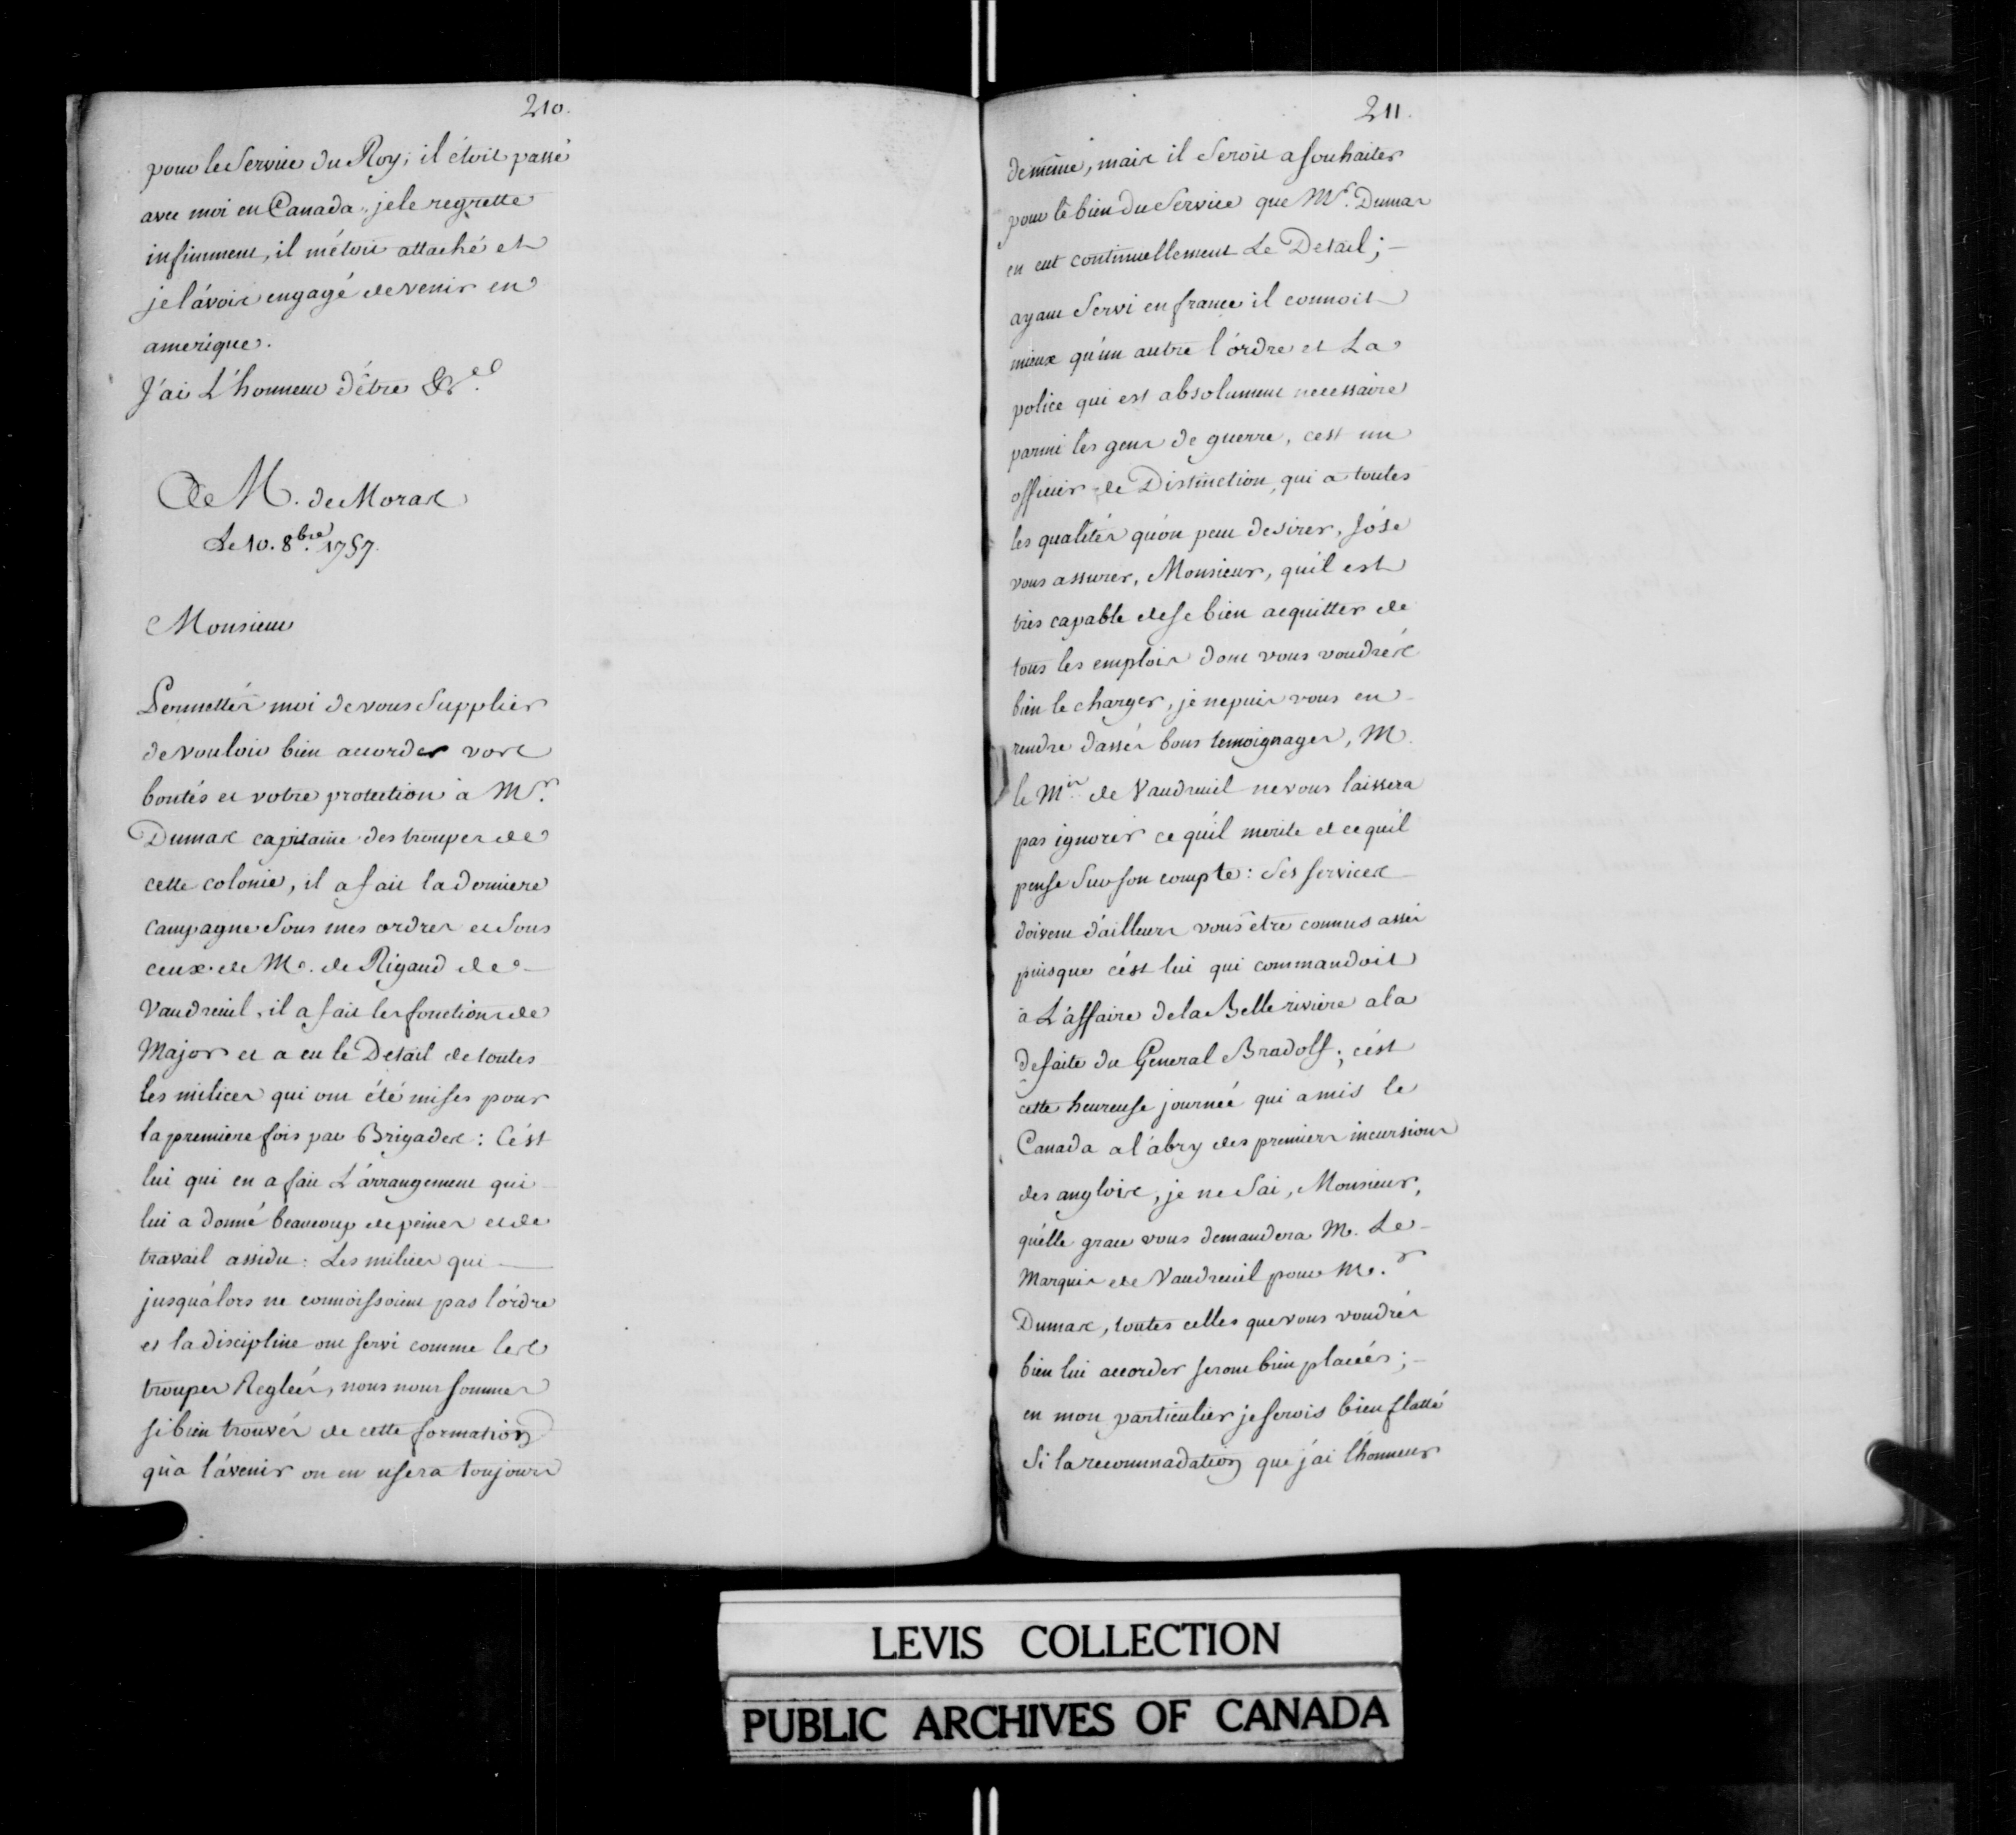 210.
pour le Service du Roy; il étoit passé
avec moi en Canada, je le regrette
infiniment, il m'étoit attaché et
je l'avois engagé de venir en
amerique.
J'ai L'honneur d'être &c.
A M. de Moras
Le 10. 8bre 1757.
Monsieur
Permettés moi de vous Supplier
de vouloir bien accorder vos
bontés et votre protection à Mr.
Dumas capitaine des troupes de
cette colonie, il a fait la derniere
campagne Sous mes ordres et Sous
ceux de M. de Rigaud de
Vaudreuil, il a fait les fonctions de
Major et a eu le Detail de toutes
les milices qui ont été mises pour
la premiere fois par Brigades : C'est
lui qui en a fait L'arrangement qui
lui a donné beaucoup de peines et de
travail assidu : Les milices qui
jusqu'alors ne connoissoient pas l'ordre
et la discipline ont servi comme les
troupes Reglées, nous nous sommes
si bien trouvés de cette formation
qu'a l'avenir on en usera toujours
211.
de même, mais il Seroit a souhaiter
pour le bien du Service que Mr. Dumas
en eut continuellement Le Detail;
ayant Servi en france il connoit
mieux qu'un autre l'ordre et La
police qui est absolument necessaire
parmi les gens de guerre, c'est un
officier de Distinction, qui a toutes
les qualités qu'on peut desirer, J'ose
vous assurer, Monsieur, qu'il est
très capable de se bien acquitter de
tous les emplois dont vous voudrés
bien le charger, je ne puis vous en
rendre d'assés bons temoignages, M.
le Mis de Vaudreuil ne vous laissera
pas ignorer ce qu'il merite et ce qu'il
pense Sur son compte : Ses services
doivent d'ailleurs vous être connus assés
puisque c'est lui qui commandoit
à L'affaire de la Belle riviere a la
defaite du General Bradolf; c'est
cette heureuse journée qui a mis le
Canada a l'abry des premiers incursions
des anglois, je ne Sai, Monsieur,
qu'elle grace vous demandera M. Le
Marquis de Vaudreuil pour Mr.
Dumas, toutes celles que vous voudrés
bien lui accorder seront bien placées;
en mon particulier je serois bien flatté
Si la recommadation que j'ai l'honneur
LEVIS COLLECTION
PUBLIC ARCHIVES OF CANADA